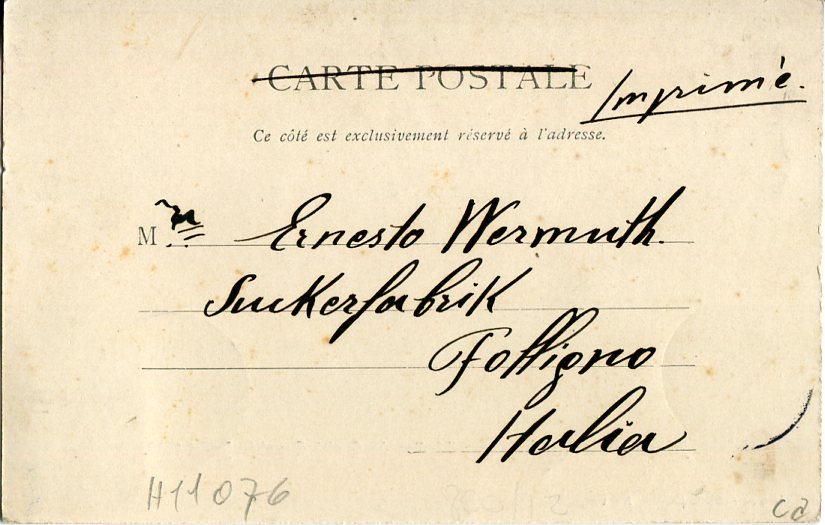 CARTE POSTALE
Imprimé.
Ce côté est exclusivement réservé à l'adresse.
M Ernesto Wermuth.
Suckerfabrik
Folligno
Italia
H11076